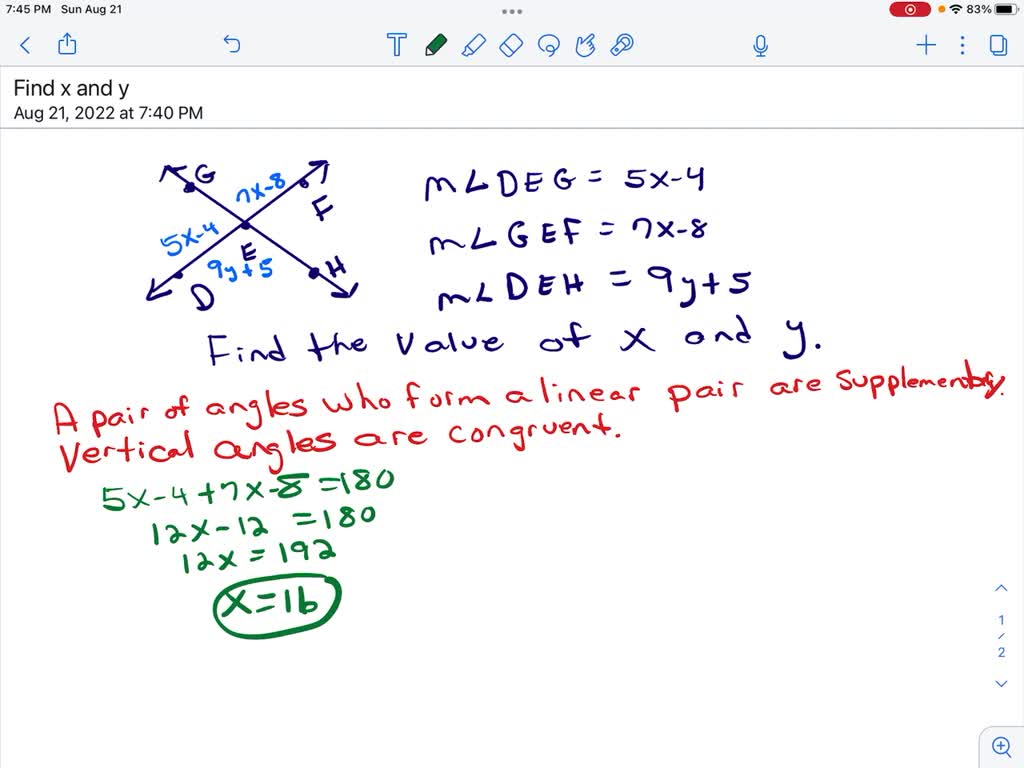 7:45 PM Sun Aug 21
83%
T
Find x and y
Aug 21, 2022 at 7:40 PM
G
7x-8
F
5x-4
E
9y+5
H
D
m∠DEG = 5x-4
m∠GEF = 7x-8
m∠DEH = 9y+5
Find the value of x and y.
A pair of angles who form a linear pair are supplementary.
Vertical angles are congruent.
5x-4+7x-8=180
12x-12 =180
12x=192
x=16
1
/
2